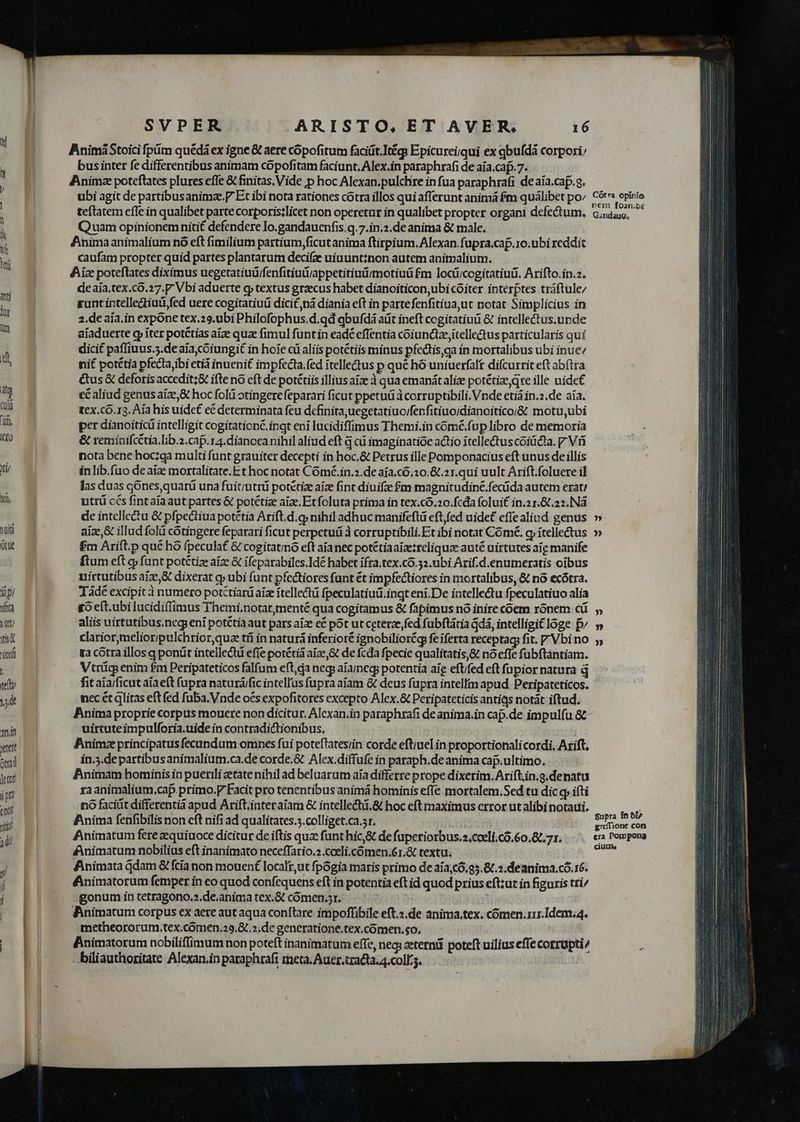 SVPER ARISTO. ET AVER. 16
Animā Stoici spūm quēdā ex igne & aere cōpositum faciūt. Itēq; Epicurei, qui ex qbusdā corpori⸗
bus inter se differentibus animam cōpositam faciunt. Alex. in paraphrasi de aīa. cap. 7.
Animæ potestates plures esse & finitas. Vide ꝓ hoc Alexan. pulchre in sua paraphrasi de aīa. cap. 9.
ubi agit de partibus animæ. Et ibi nota rationes cōtra illos qui asserunt animā ẜm quālibet po⸗
testatem esse in qualibet parte corporis: licet non operetur in qualibet propter organi defectum.
Quam opinionem nitit̄ defendere Io. gandauensis. q. 7. in. 2. de anima & male.
Anima animalium nō est similium partium, sicut anima stirpium. Alexan. supra. cap. 10. ubi reddit
causam propter quid partes plantarum decisæ uiuunt: non autem animalium.
Aīæ potestates diximus uegetatiuū/sensitiuū/appetitiuū/motiuū ẜm locū/cogitatiuū. Aristo. in. 2.
de aīa. tex. cō. 27. Vbi aduerte ꝙ textus græcus habet dianoiticon, ubi cōiter interp̄tes trāstule⸗
runt intellectiuū, sed uere cogitatiuū dicit̄, nā diania est in parte sensitiua, ut notat Simplicius in
2. de aīa. in expōne tex. 29. ubi Philosophus. d. qd qbusdā aūt inest cogitatiuū & intellectus. unde
aīaduerte ꝙ iter potētias aīæ quæ simul sunt in eadē essentia cōiunctæ, itellectus particularis qui
dicit̄ passiuus. 3. de aīa, cōiungit̄ in hoīe cū aliis potētiis minus pfectis, qa in mortalibus ubi inue⸗
nit̄ potētia pfecta, ibi etiā inuenit̄ impfecta. sed itellectus p quē hō uniuersalr̄ discurrit est abstra
ctus & deforis accedit: & iste nō est de potētiis illius aīæ à qua emanāt aliæ potētiæ, de ille uidet̄
eē aliud genus aīæ, & hoc solū ɔtingere separari sicut ppetuū à corruptibili. Vnde etiā in. 2. de aīa.
tex. cō. 13. Aīa his uidet̄ eē determinata seu definita, uegetatiuo/sensitiuo/dianoitico/& motu, ubi
per dianoiticū intelligit cogitationē. inqt enī lucidissimus Themi. in cōmē. sup libro de memoria
& reminiscētia. lib. 2. cap. 14. dianoea nihil aliud est q̄ cū imaginatiōe actio itellectus cōiūcta. Vn̄
nota bene hoc: qa multi sunt grauiter decepti in hoc. & Petrus ille Pomponacius est unus de illis
in lib. suo de aīæ mortalitate. Et hoc notat Cōmē. in. 2. de aīa. cō. 20. &. 21. qui uult Arist. soluere il
las duas qōnes, quarū una fuit, utrū potētiæ aīæ sint diuisæ ẜm magnitudinē. secūda autem erat⸗
utrū oēs sint aīa aut partes & potētiæ aīæ. Et soluta prima in tex. cō. 20. scda soluit̄ in. 21. &. 22. Nā
de intellectu & pspectiua potētia Arist. d. ꝙ nihil adhuc manifestū est, sed uidet̄ esse aliud genus „
aīæ, & illud solū cōtingere separari sicut perpetuū à corruptibili. Et ibi notat Cōmē. ꝙ itellectus „
ẜm Arist. p quē hō speculat̄ & cogitat, nō est aīa nec potētia aīæ: reliquæ autē uirtutes aīę manife
stum est ꝙ sunt potētiæ aīæ & iseparabiles. Idē habet ifra. tex. cō. 32. ubi Arist. d. enumeratis oībus
uirtutibus aīæ, & dixerat ꝙ ubi sunt pfectiores sunt ēt impfectiores in mortalibus, & nō ecōtra.
Tādē excipit à numero potētiarū aīæ itellectū speculatiuū. inqt enī. De intellectu speculatiuo alia
rō est. ubi lucidissimus Themi. notat, mentē qua cogitamus & sapimus nō inire cōem rōnem cū „
aliis uirtutibus. neq; enī potētia aut pars aīæ eē pōt ut ceteræ, sed substātia q̄dā, intelligit̄ lōge p̱⸗ „
clarior, melior, pulchrior, quæ tn̄ in naturā inferiorē ignobiliorēq; se iserta receptaq; sit. Vbi no „
ta cōtra illos q ponūt intellectū esse potētiā aīæ, & de scda specie qualitatis, & nō esse substantiam.
Vtrūq; enim ẜm Peripateticos falsum est, qa neq; aīa, neq; potentia aīę est, sed est supior natura q̄
sit aīa, sicut aīa est supra naturā, sic intellus̄ supra aīam & deus supra intellm̄ apud Peripateticos.
nec ēt qlitas est sed suba. Vnde oēs expositores excepto Alex. & Peripateticis antiqs notāt istud.
Anima proprie corpus mouere non dicitur. Alexan. in paraphrasi de anima. in cap. de impulsu &
uirtute impulsoria. uide in contradictionibus.
Animæ principatus secundum omnes sui potestates, in corde est, uel in proportionali cordi. Arist.
in. 3. de partibus animalium. ca. de corde. & Alex. diffuse in paraph. de anima cap. ultimo.
Animam hominis in puerili ætate nihil ad beluarum aīa differre prope dixerim. Arist. in. 9. de natu
ra animalium. cap primo. Facit pro tenentibus animā hominis esse mortalem. Sed tu dic ꝙ isti
nō faciūt differentiā apud Arist. inter aīam & intellectū. & hoc est maximus error ut alibi notaui.
Anima sensibilis non est nisi ad qualitates. 5. colliget. ca. 31.
Animatum fere æquiuoce dicitur de istis quæ sunt hic, & de superioribus. 2. cœli. cō. 60. &. 71.
Animatum nobilius est inanimato necessario. 2. cœli. cōmen. 61. & textu.
Animata q̄dam & scīa non mouent̄ localr̄, ut spōgia maris primo de aīa, cō. 95. &. 2. de anima. cō. 16.
Animatorum semper in eo quod consequens est in potentia est id quod prius est: ut in figuris tri⸗
gonum in tetragono. 2. de. anima tex. & cōmen. 31.
Animatum corpus ex aere aut aqua constare impossibile est. 2. de anima. tex. cōmen. 111. Idem. 4.
metheororum. tex. cōmen. 29. &. 2. de generatione. tex. cōmen. 50.
Animatorum nobilissimum non potest inanimatum esse, neq; æternū potest uilius esse corrupti⸗
bili authoritate Alexan. in paraphrasi meta. Auer. tracta. 4. coll̄. 3.
Cōtra opinio
nem Ioan. De
Gandauo.
Supra in di⸗
gressione con
tra Pompona
cium.